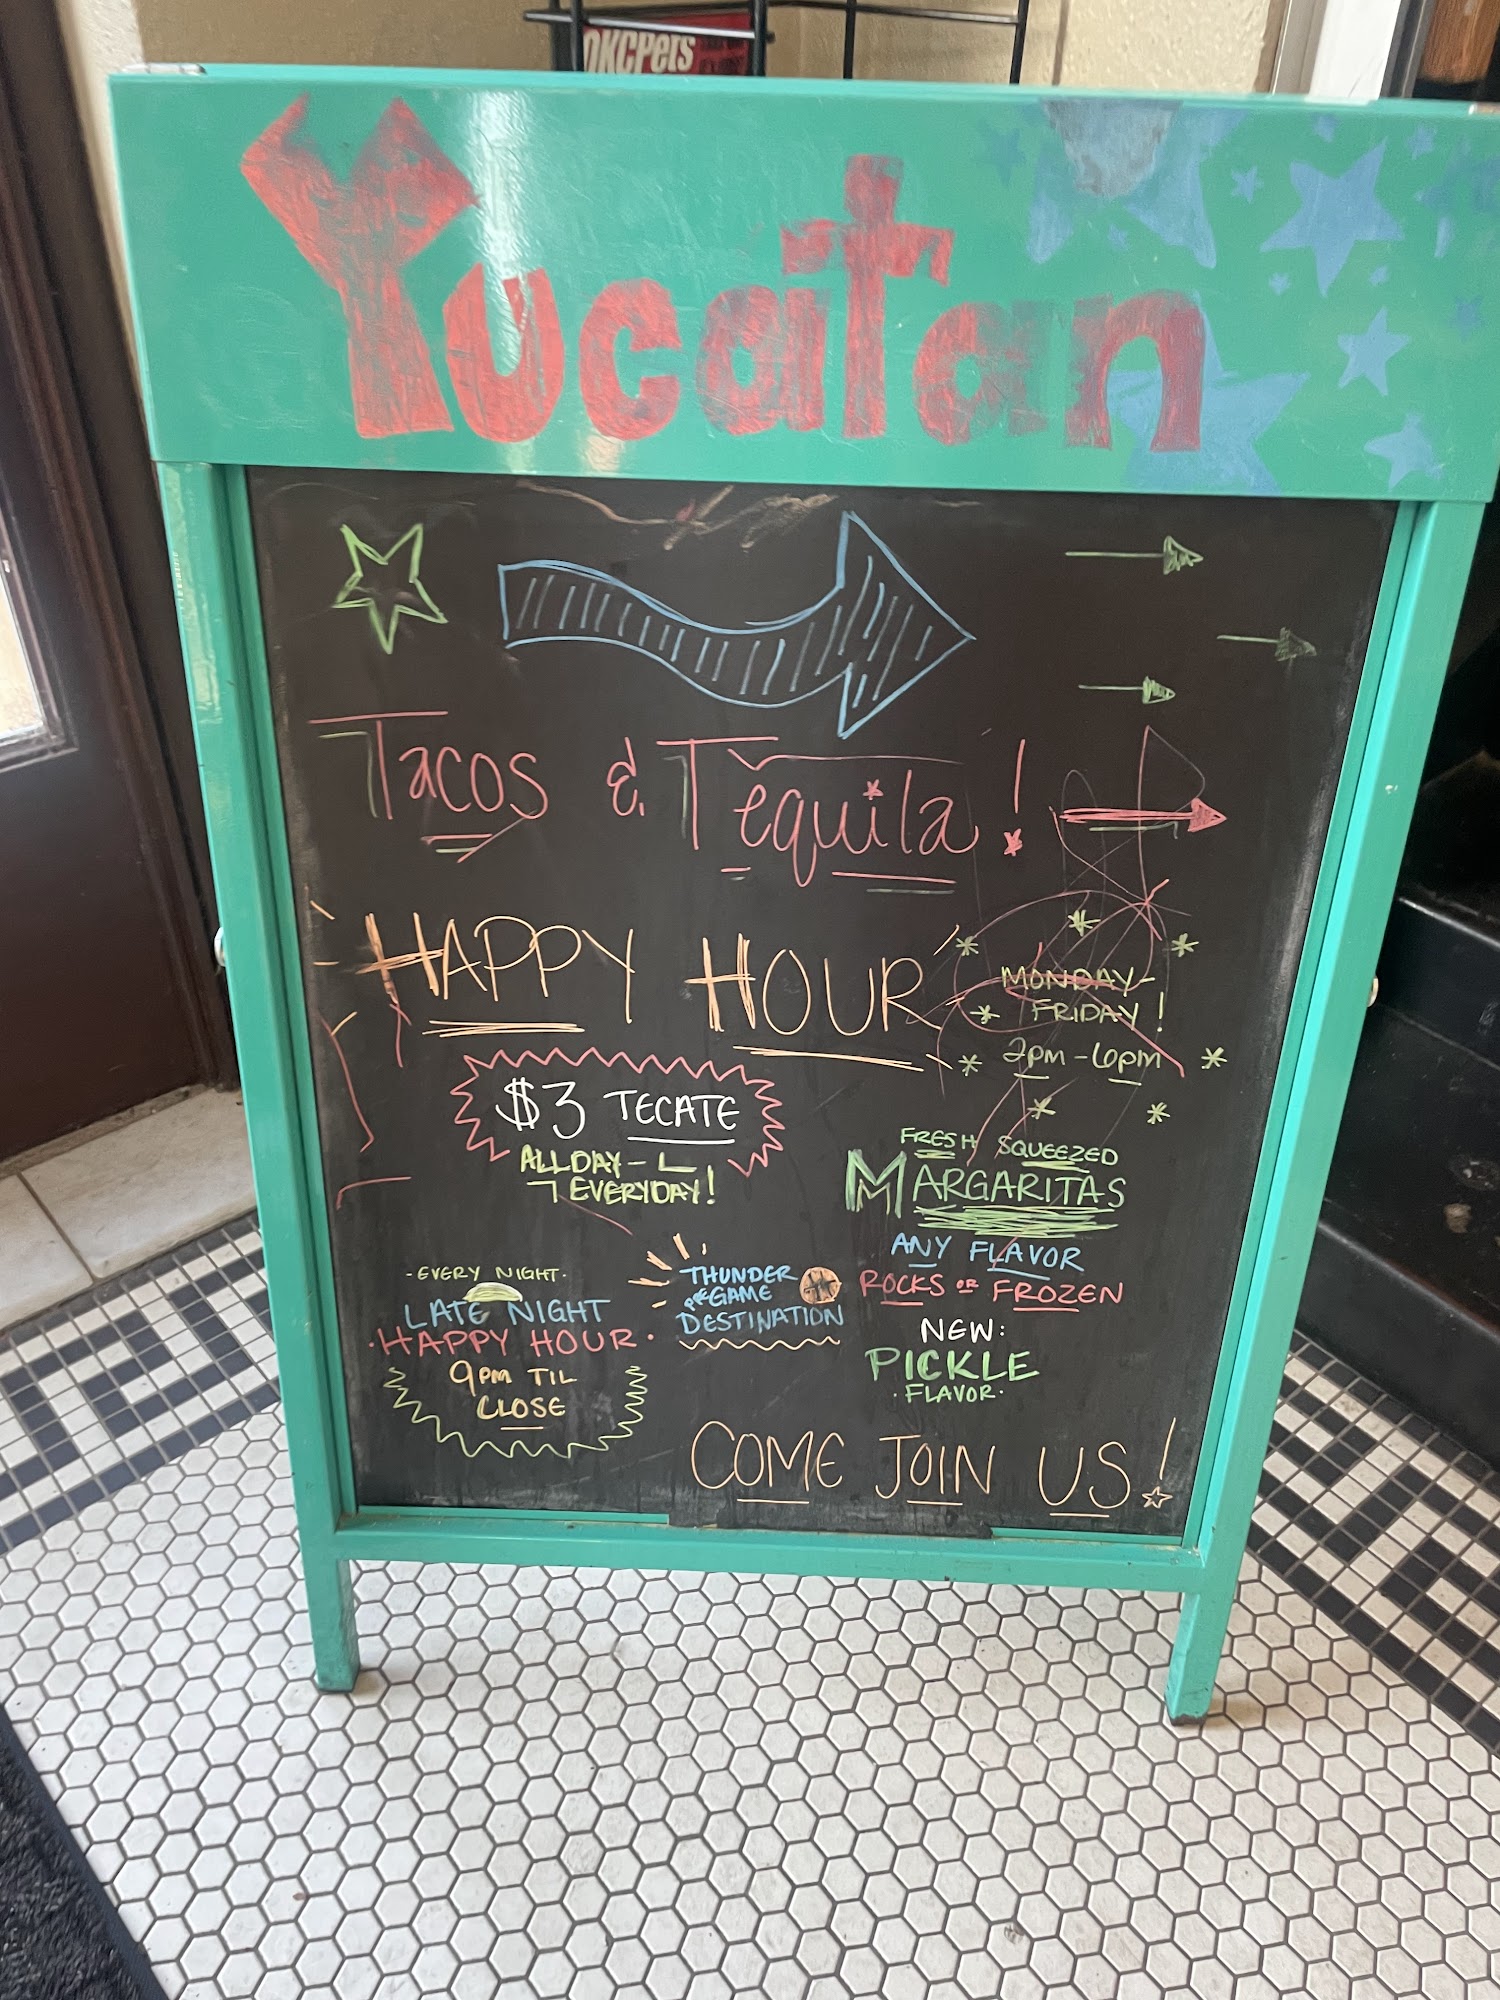 OKCPets
Yucatan
Tacos & Tequila!
HAPPY HOUR
MONDAY-
FRIDAY!
2pm-6pm
$3 TECATE
ALLDAY-
EVERYDAY!
FRESH SQUEEZED
MARGARITAS
ANY FLAVOR
ROCKS OR FROZEN
NEW:
PICKLE
·FLAVOR·
-EVERY NIGHT-
LATE NIGHT
·HAPPY HOUR·
9PM TIL
CLOSE
THUNDER
PREGAME
DESTINATION
COME JOIN US!